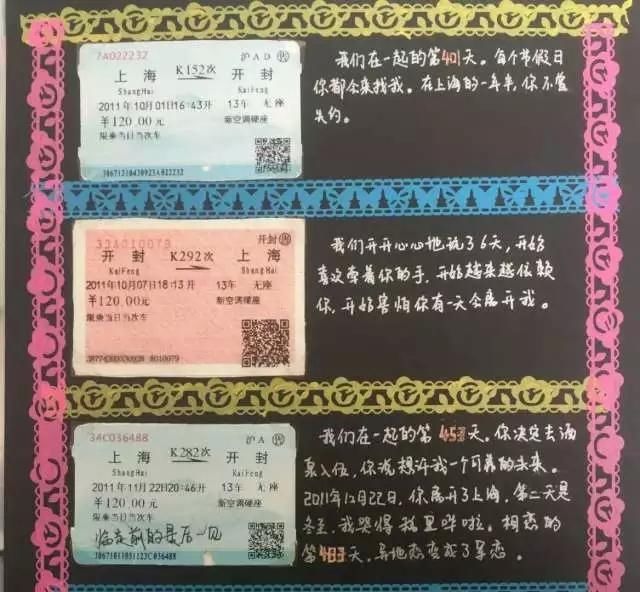 7A022232
沪AD 售
上海 K152次 开封
ShangHai KaiFeng
2011年10月01日16:43开 13车 无座
¥120.00元 新空调硬座
限乘当日当次车
30671210430923A022232
我们在一起的第401天。每个节假日
你都会来找我。在上海的一年半,你不曾
失约。
33A010079
开封 售
开封 K292次 上海
KaiFeng ShangHai
2011年10月07日18:13开 13车 无座
¥120.00元 新空调硬座
限乘当日当次车
我们开开心心地玩了6天,开始
喜欢牵着你的手,开始越来越依赖
你,开始害怕你有一天会离开我。
34C036488
沪A 售
上海 K282次 开封
ShangHai KaiFeng
2011年11月22日20:46开 13车 无座
¥120.00元 新空调硬座
限乘当日当次车
临走前的最后一见
30671011051123C036488
我们在一起的第453天。你决定去酒
泉入伍,你说想许我一个可靠的未来。
2011年12月22日,你离开了上海,第二天是
冬至,我哭得稀里哗啦。相恋的
第483天,异地恋变成了军恋。